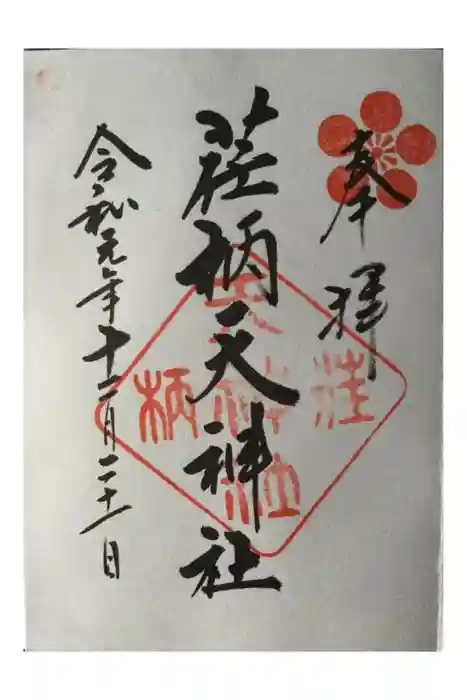 奉拝
荏柄天神社
令和元年十二月二十一日
荏
天神社
柄